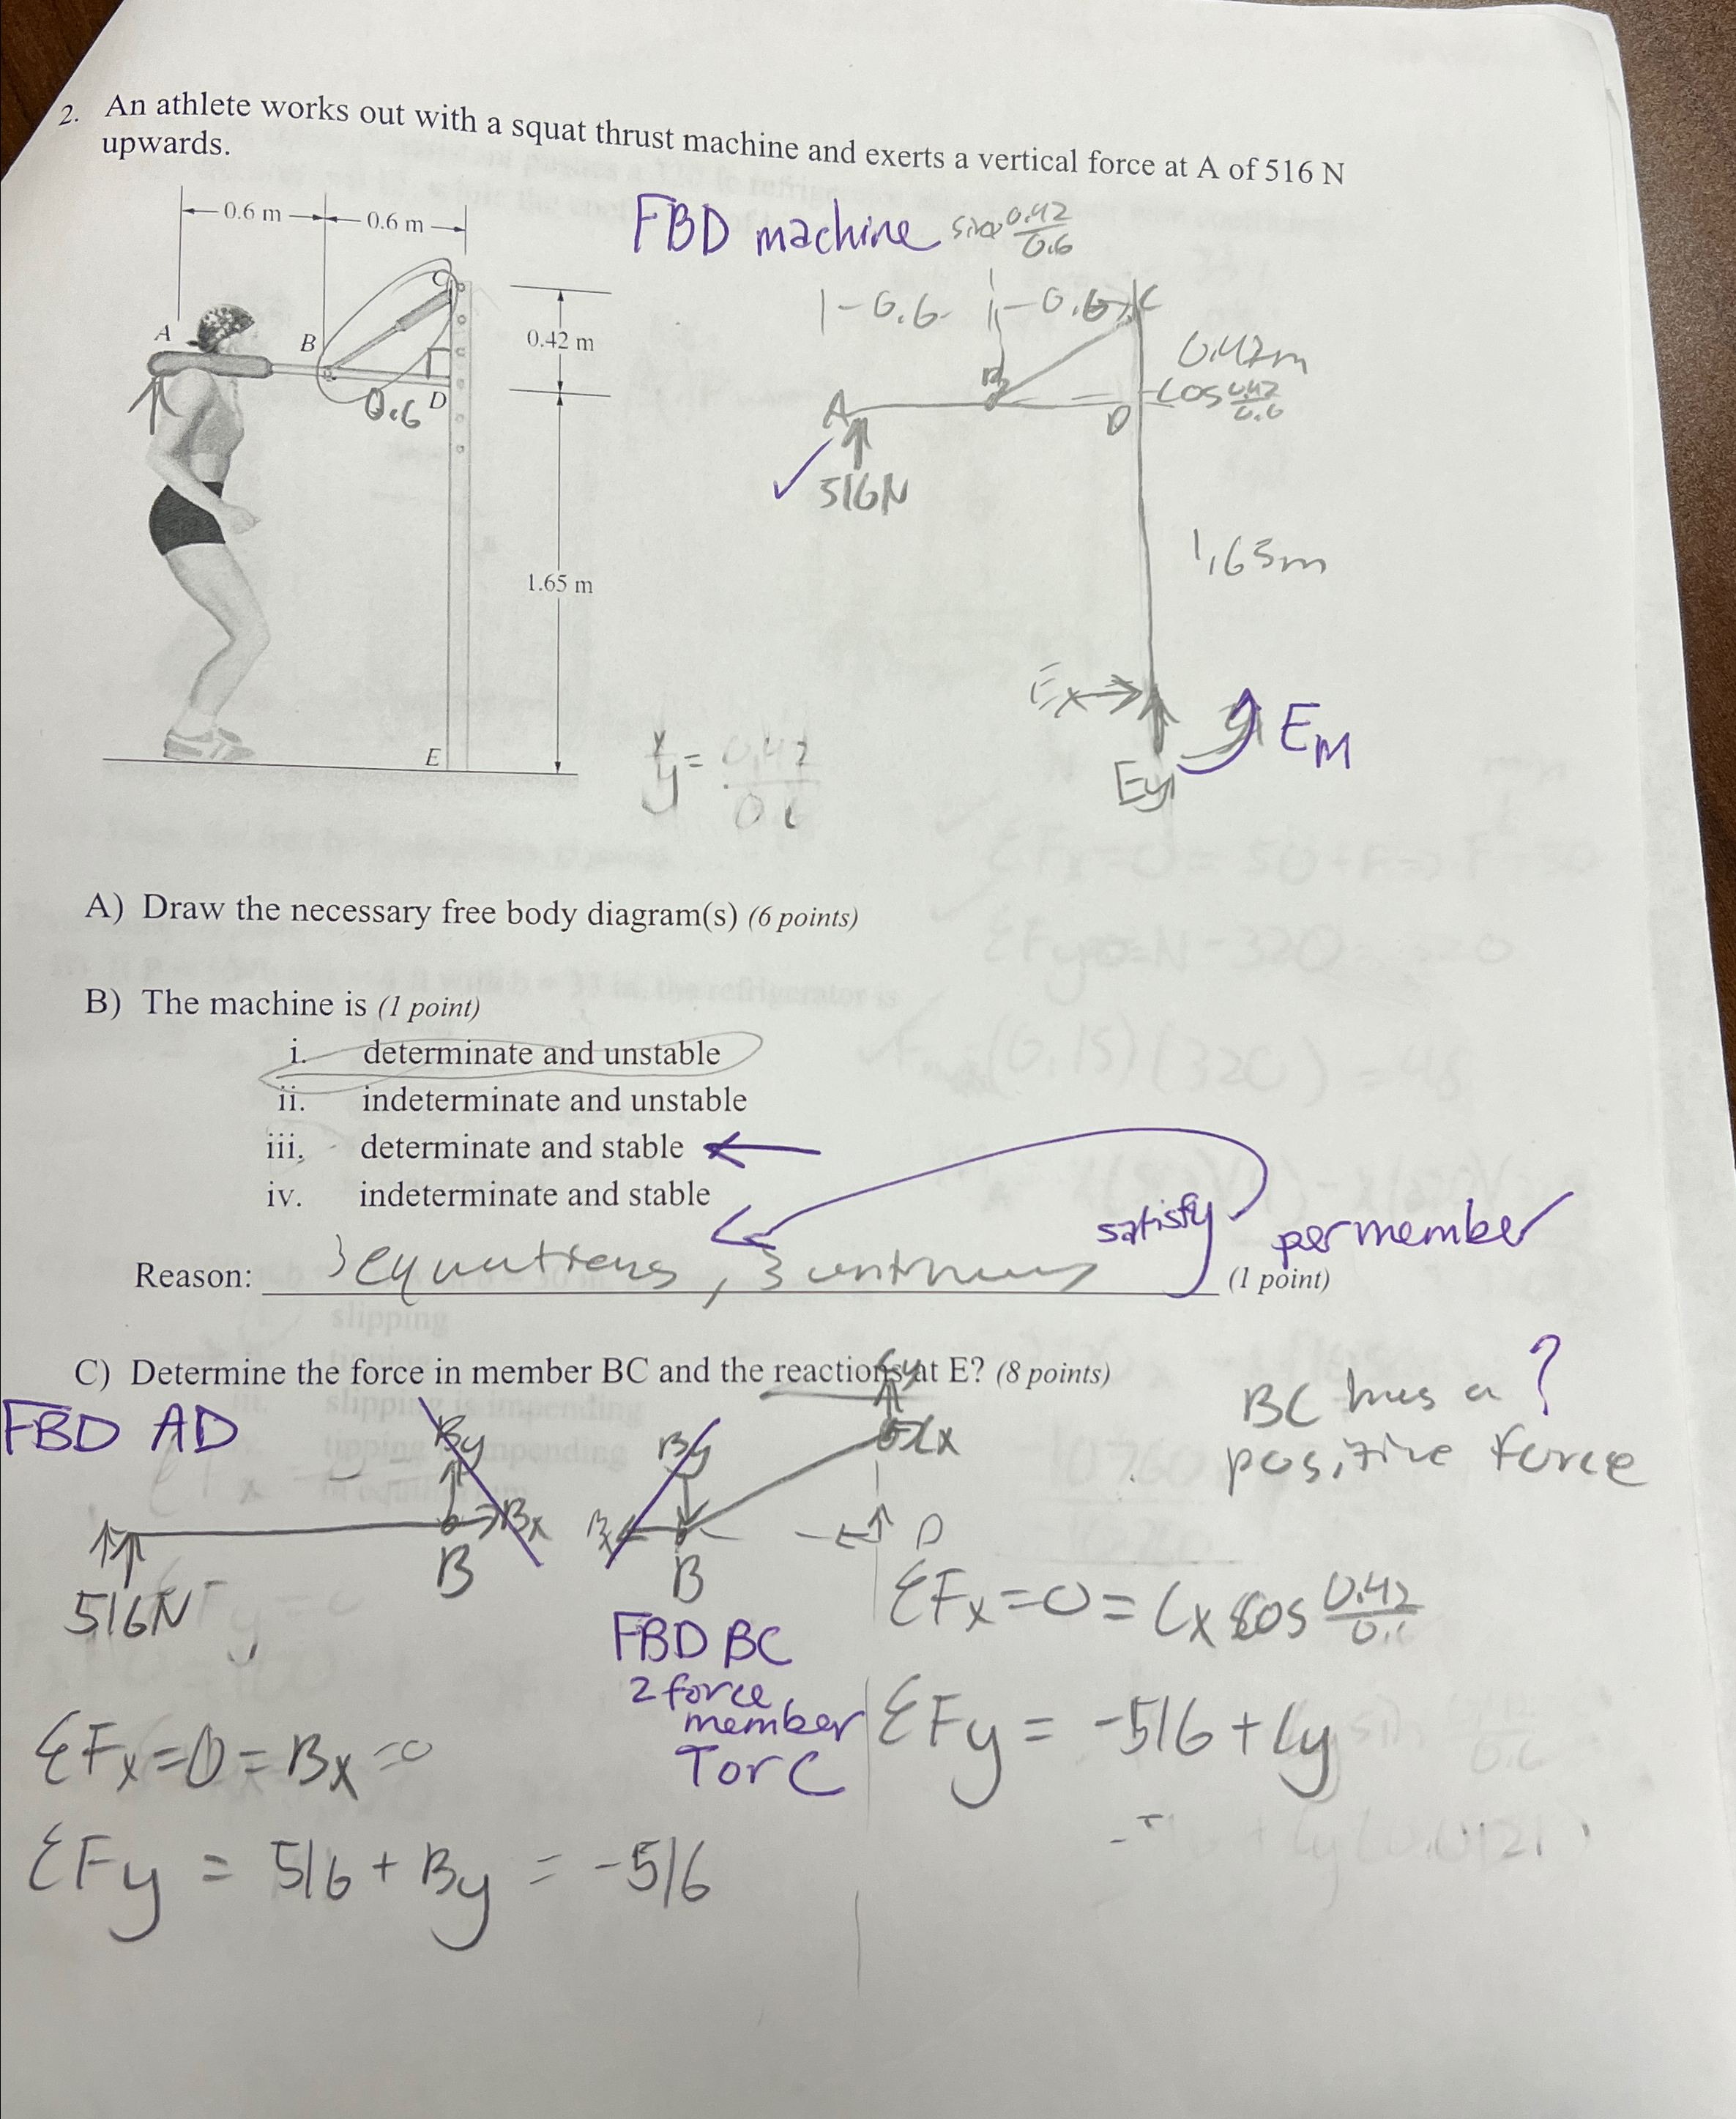 2. An athlete works out with a squat thrust machine and exerts a vertical force at A of 516 N
upwards.
0.6 m 0.6 m
FBD machine
0.42
0.6
C
A
B
D
0.6
0.42 m
1.65 m
E
-0.6- -0.6- C
0.42m
B
A
D
cos 0.42
0.6
516N
1.65m
Ex
Ey
EM
y = 0.42
A) Draw the necessary free body diagram(s) (6 points)
B) The machine is (1 point)
i. determinate and unstable
ii. indeterminate and unstable
iii. determinate and stable
iv. indeterminate and stable
satisfy per member
Reason: 3 equations, 3 (1 point)
C) Determine the force in member BC and the reactions at E? (8 points)
Cy
BC has a ?
positive force
FBD AD
By
Bx
B
516N
By
Bx
B
Cx
D
FBD BC
2 force
member
T or C
ΣFx=0=Bx=0
ΣFy = 516 + By = -516
ΣFx=0= Cx cos 0.42
ΣFy = -516 + Cy